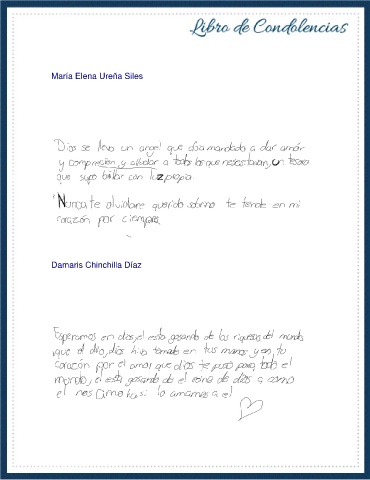 Libro de Condolencias
María Elena Ureña Siles
Dios se llevo un angel que dia mandado a dar amor
y comprecion y alludar a todos los que nesesitavan, un tesoro
que supo brillar con luz propia
Nunca, te olvidare querido sobrino te tendre en mi
corazón por ciempre
Damaris Chinchilla Díaz
Esperamos en dios el esta gosando de las riquesas del mundo
que el dio, dios hiso tomado en tus manos y en, tu
corazón por el amor que dios te puso para todo el
mundo y el esta gosando de el reino de dios a como
el nos lo amamos a el